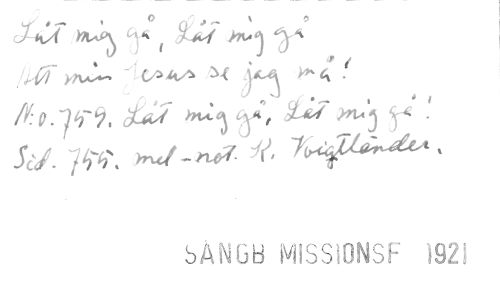 Låt mig gå, Låt mig gå
Att min Jesus se jag må!
N:o. 759. Låt mig gå, Låt mig gå!
Sid. 755. mel-not. K. Voigtländer.
SÅNGB MISSIONSF 1921